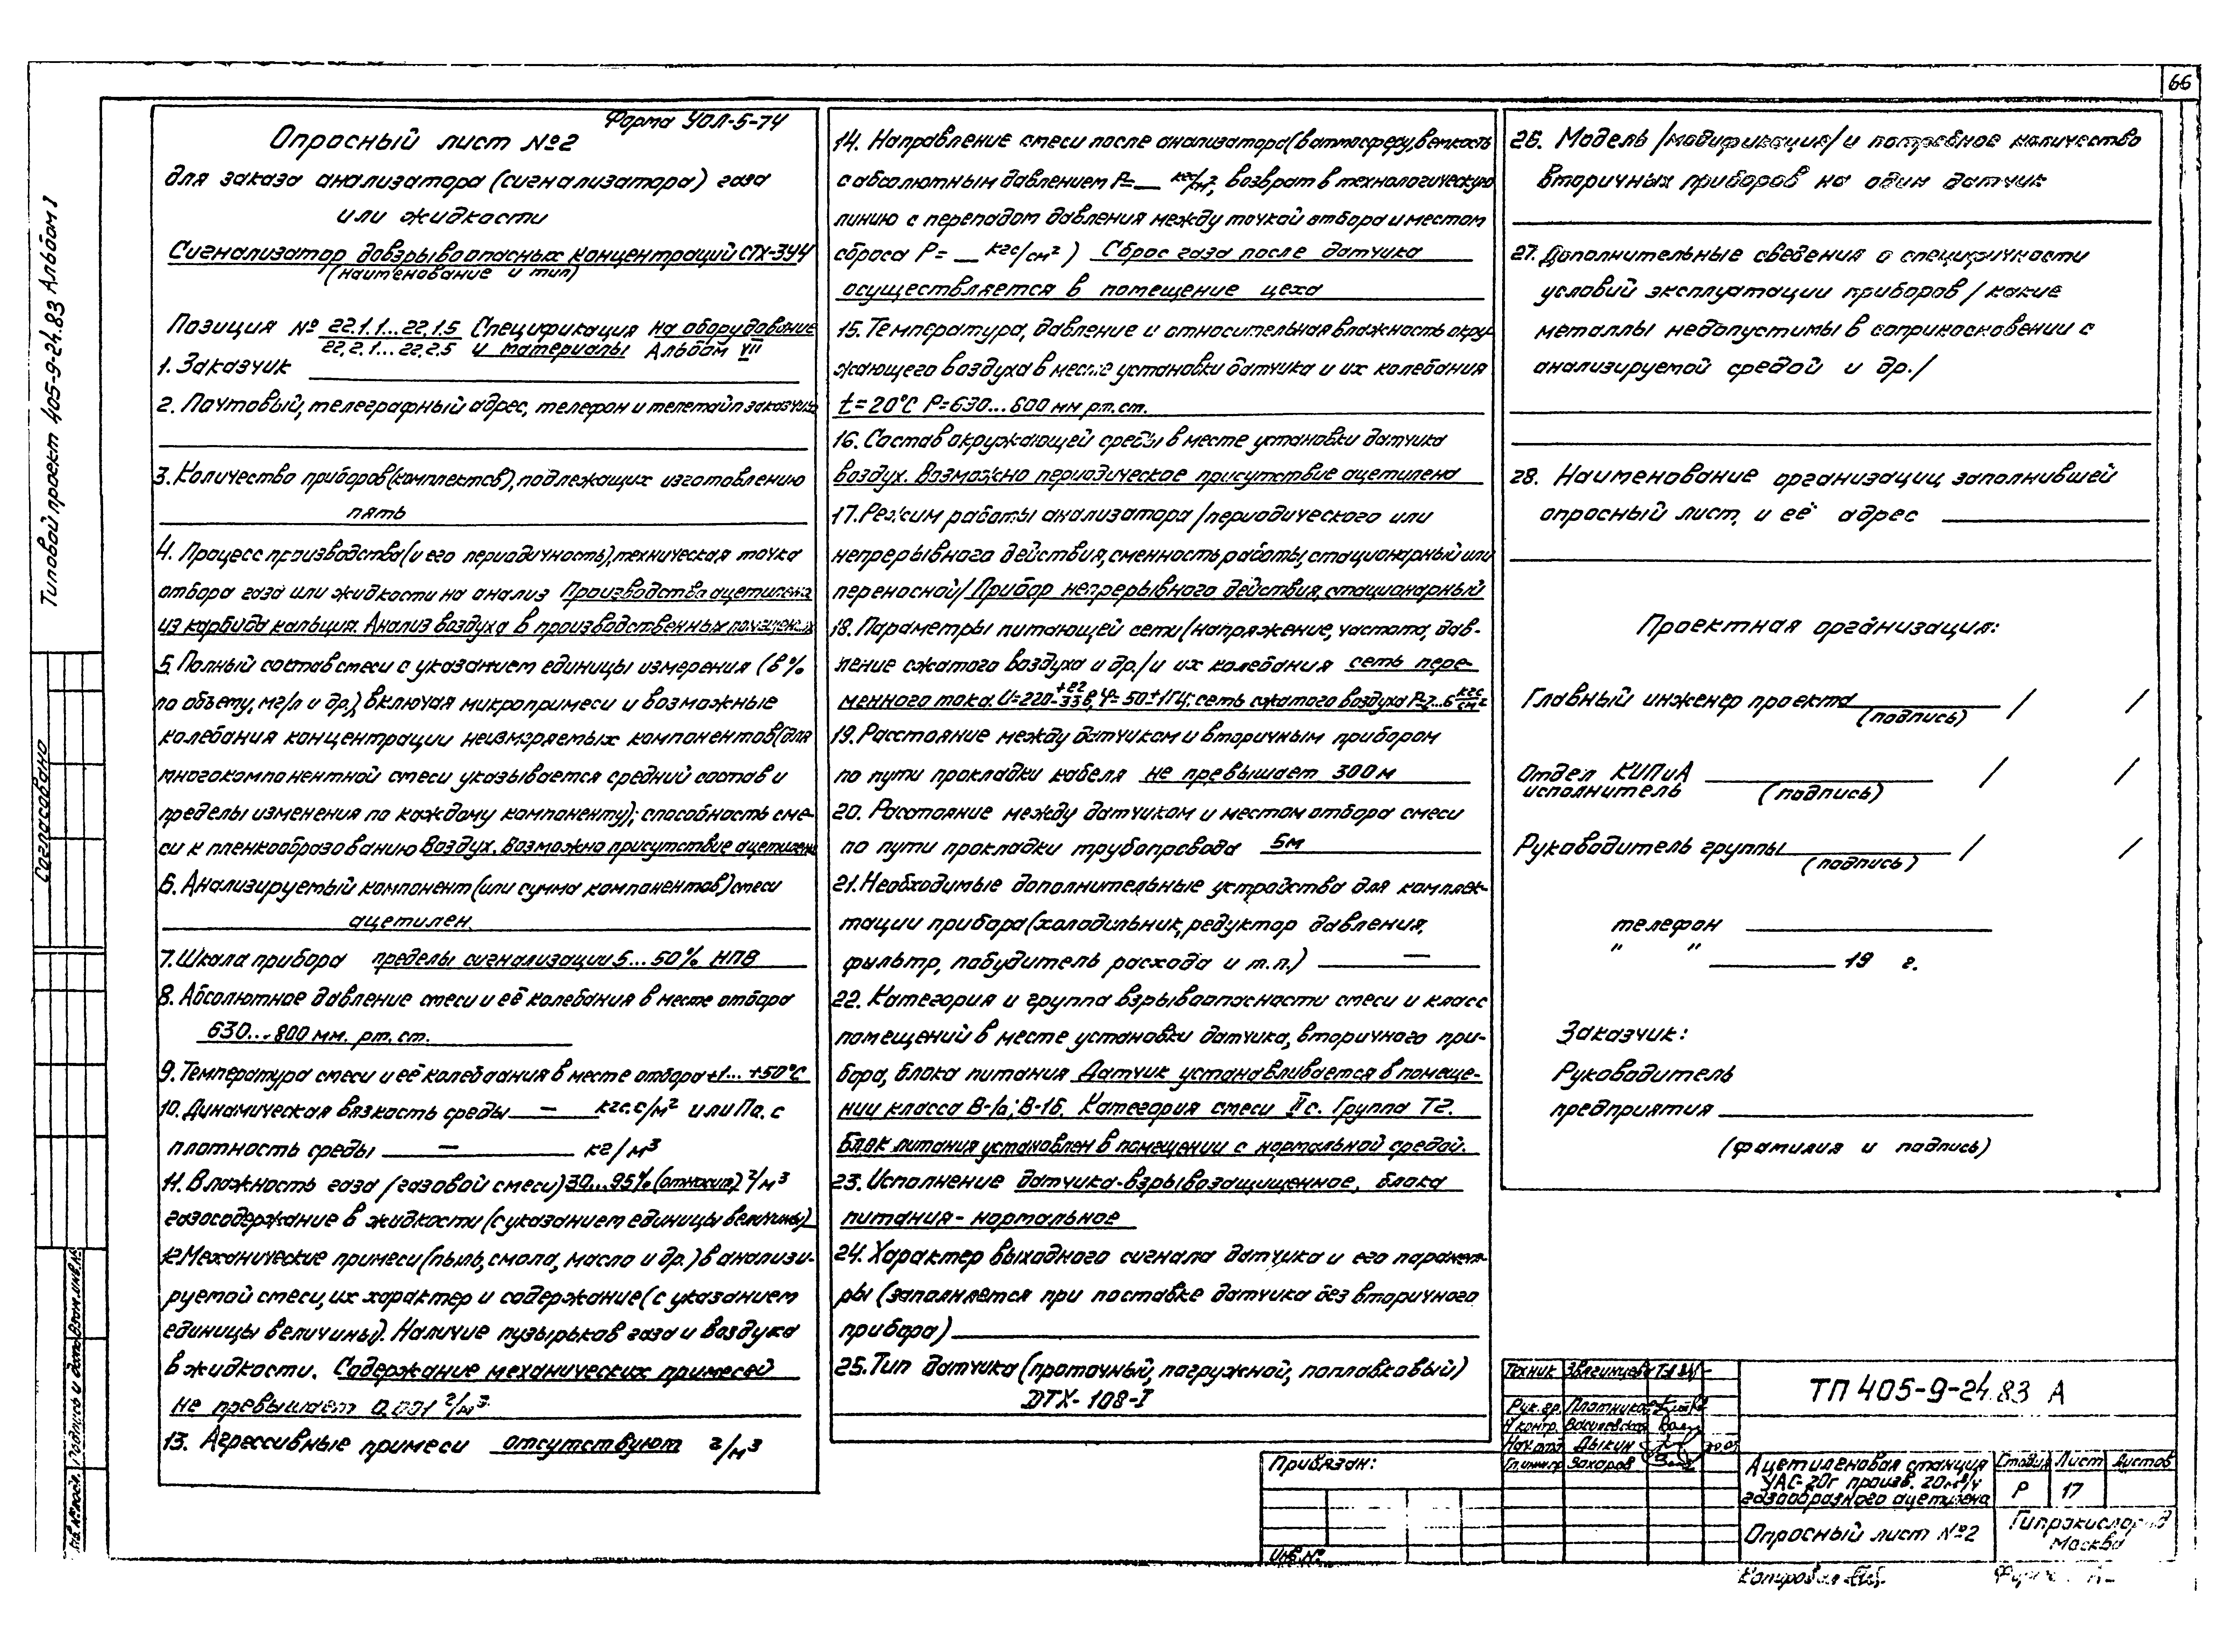 66
Форма УОЛ-5-74
Опросный лист №2
для заказа анализатора (сигнализатора) газа
или жидкости
Сигнализатор довзрывоопасных концентраций СТХ-3У4
(наименование и тип)
Позиция № 22.1.1...22.1.5 Спецификация на оборудование
22.2.1...22.2.5 и материалы Альбом VII
1. Заказчик
2. Почтовый, телеграфный адрес, телефон и телетайп заказчика
3. Количество приборов (комплектов), подлежащих изготовлению
пять
4. Процесс производства (и его периодичность), техническая точка
отбора газа или жидкости на анализ Производство ацетилена
из карбида кальция. Анализ воздуха в производственных помещениях
5. Полный состав смеси с указанием единицы измерения (в %
по объему, мг/л и др.), включая микропримеси и возможные
колебания концентрации неизмеряемых компонентов (для
многокомпонентной смеси указывается средний состав и
пределы изменения по каждому компоненту); способность сме-
си к пленкообразованию Воздух. Возможно присутствие ацетилена
6. Анализируемый компонент (или сумма компонентов) смеси
ацетилен.
7. Шкала прибора пределы сигнализации 5...50% НПВ
8. Абсолютное давление смеси и её колебания в месте отбора
630...800 мм. рт. ст.
9. Температура смеси и её колебания в месте отбора +1...+50°С
10. Динамическая вязкость среды — кгс.с/м² или Па.с
плотность среды — кг/м³
11. Влажность газа (газовой смеси) 30...95% (относит.) г/м³
газосодержание в жидкости (с указанием единицы величины)
12. Механические примеси (пыль, смола, масло и др.) в анализи-
руемой смеси, их характер и содержание (с указанием
единицы величины). Наличие пузырьков газа и воздуха
в жидкости. Содержание механических примесей
не превышает 0,001 г/м³
13. Агрессивные примеси отсутствуют г/м³
14. Направление смеси после анализатора (в атмосферу, в емкость
с абсолютным давлением Р=__ кг/см², возврат в технологическую
линию с перепадом давления между точкой отбора и местом
сброса Р=__ кгс/см²) Сброс газа после датчика
осуществляется в помещение цеха
15. Температура, давление и относительная влажность окру-
жающего воздуха в месте установки датчика и их колебания
t=20°С Р=630...800 мм рт.ст.
16. Состав окружающей среды в месте установки датчика
воздух. Возможно периодическое присутствие ацетилена
17. Режим работы анализатора /периодического или
непрерывного действия, сменность работы, стационарный или
переносной/ Прибор непрерывного действия, стационарный
18. Параметры питающей сети (напряжение, частота, дав-
ление сжатого воздуха и др./ и их колебания сеть пере-
менного тока. U=220 +22 -33 В, f=50±1Гц; сеть сжатого воздуха Р=2...6 кгс/см²
19. Расстояние между датчиком и вторичным прибором
по пути прокладки кабеля не превышает 300 м
20. Расстояние между датчиком и местом отбора смеси
по пути прокладки трубопровода 5м
21. Необходимые дополнительные устройства для комплек-
тации прибора (холодильник, редуктор давления,
фильтр, побудитель расхода и т.п.) —
22. Категория и группа взрывоопасности смеси и класс
помещений в месте установки датчика, вторичного при-
бора, блока питания Датчик устанавливается в помеще-
нии класса В-Iа; В-Iб. Категория смеси IIс. Группа Т2.
Блок питания установлен в помещении с нормальной средой.
23. Исполнение датчика-взрывозащищенное, блока
питания - нормальное
24. Характер выходного сигнала датчика и его парамет-
ры (заполняется при поставке датчика без вторичного
прибора)
25. Тип датчика (проточный, погружной, поплавковый)
DТХ-108-I
26. Модель /модификация/ и потребное количество
вторичных приборов на один датчик
27. Дополнительные сведения о специфичности
условий эксплуатации приборов /какие
металлы недопустимы в соприкосновении с
анализируемой средой и др./
28. Наименование организации, заполнившей
опросный лист, и её адрес
Проектная организация:
Главный инженер проекта / /
(подпись)
Отдел КИПиА / /
исполнитель (подпись)
Руководитель группы / /
(подпись)
телефон
" " 19 г.
Заказчик:
Руководитель
предприятия
(фамилия и подпись)
Типовой проект 405-9-24.83 Альбом I
Согласовано
Инв.№подл. Подпись и дата Взам.инв.№
Привязан:
Инв.№
Техник Звягинцева
Рук.гр. Плотникова
Н.контр. Василевская
Нач.отд. Дыкин
Гл.инж.пр. Захаров
ТП 405-9-24.83 А
Ацетиленовая станция
УАС-20г произв. 20м³/ч
газообразного ацетилена
Стадия Лист Листов
Р 17
Опросный лист №2
Гипрокислород
Москва
Копировал